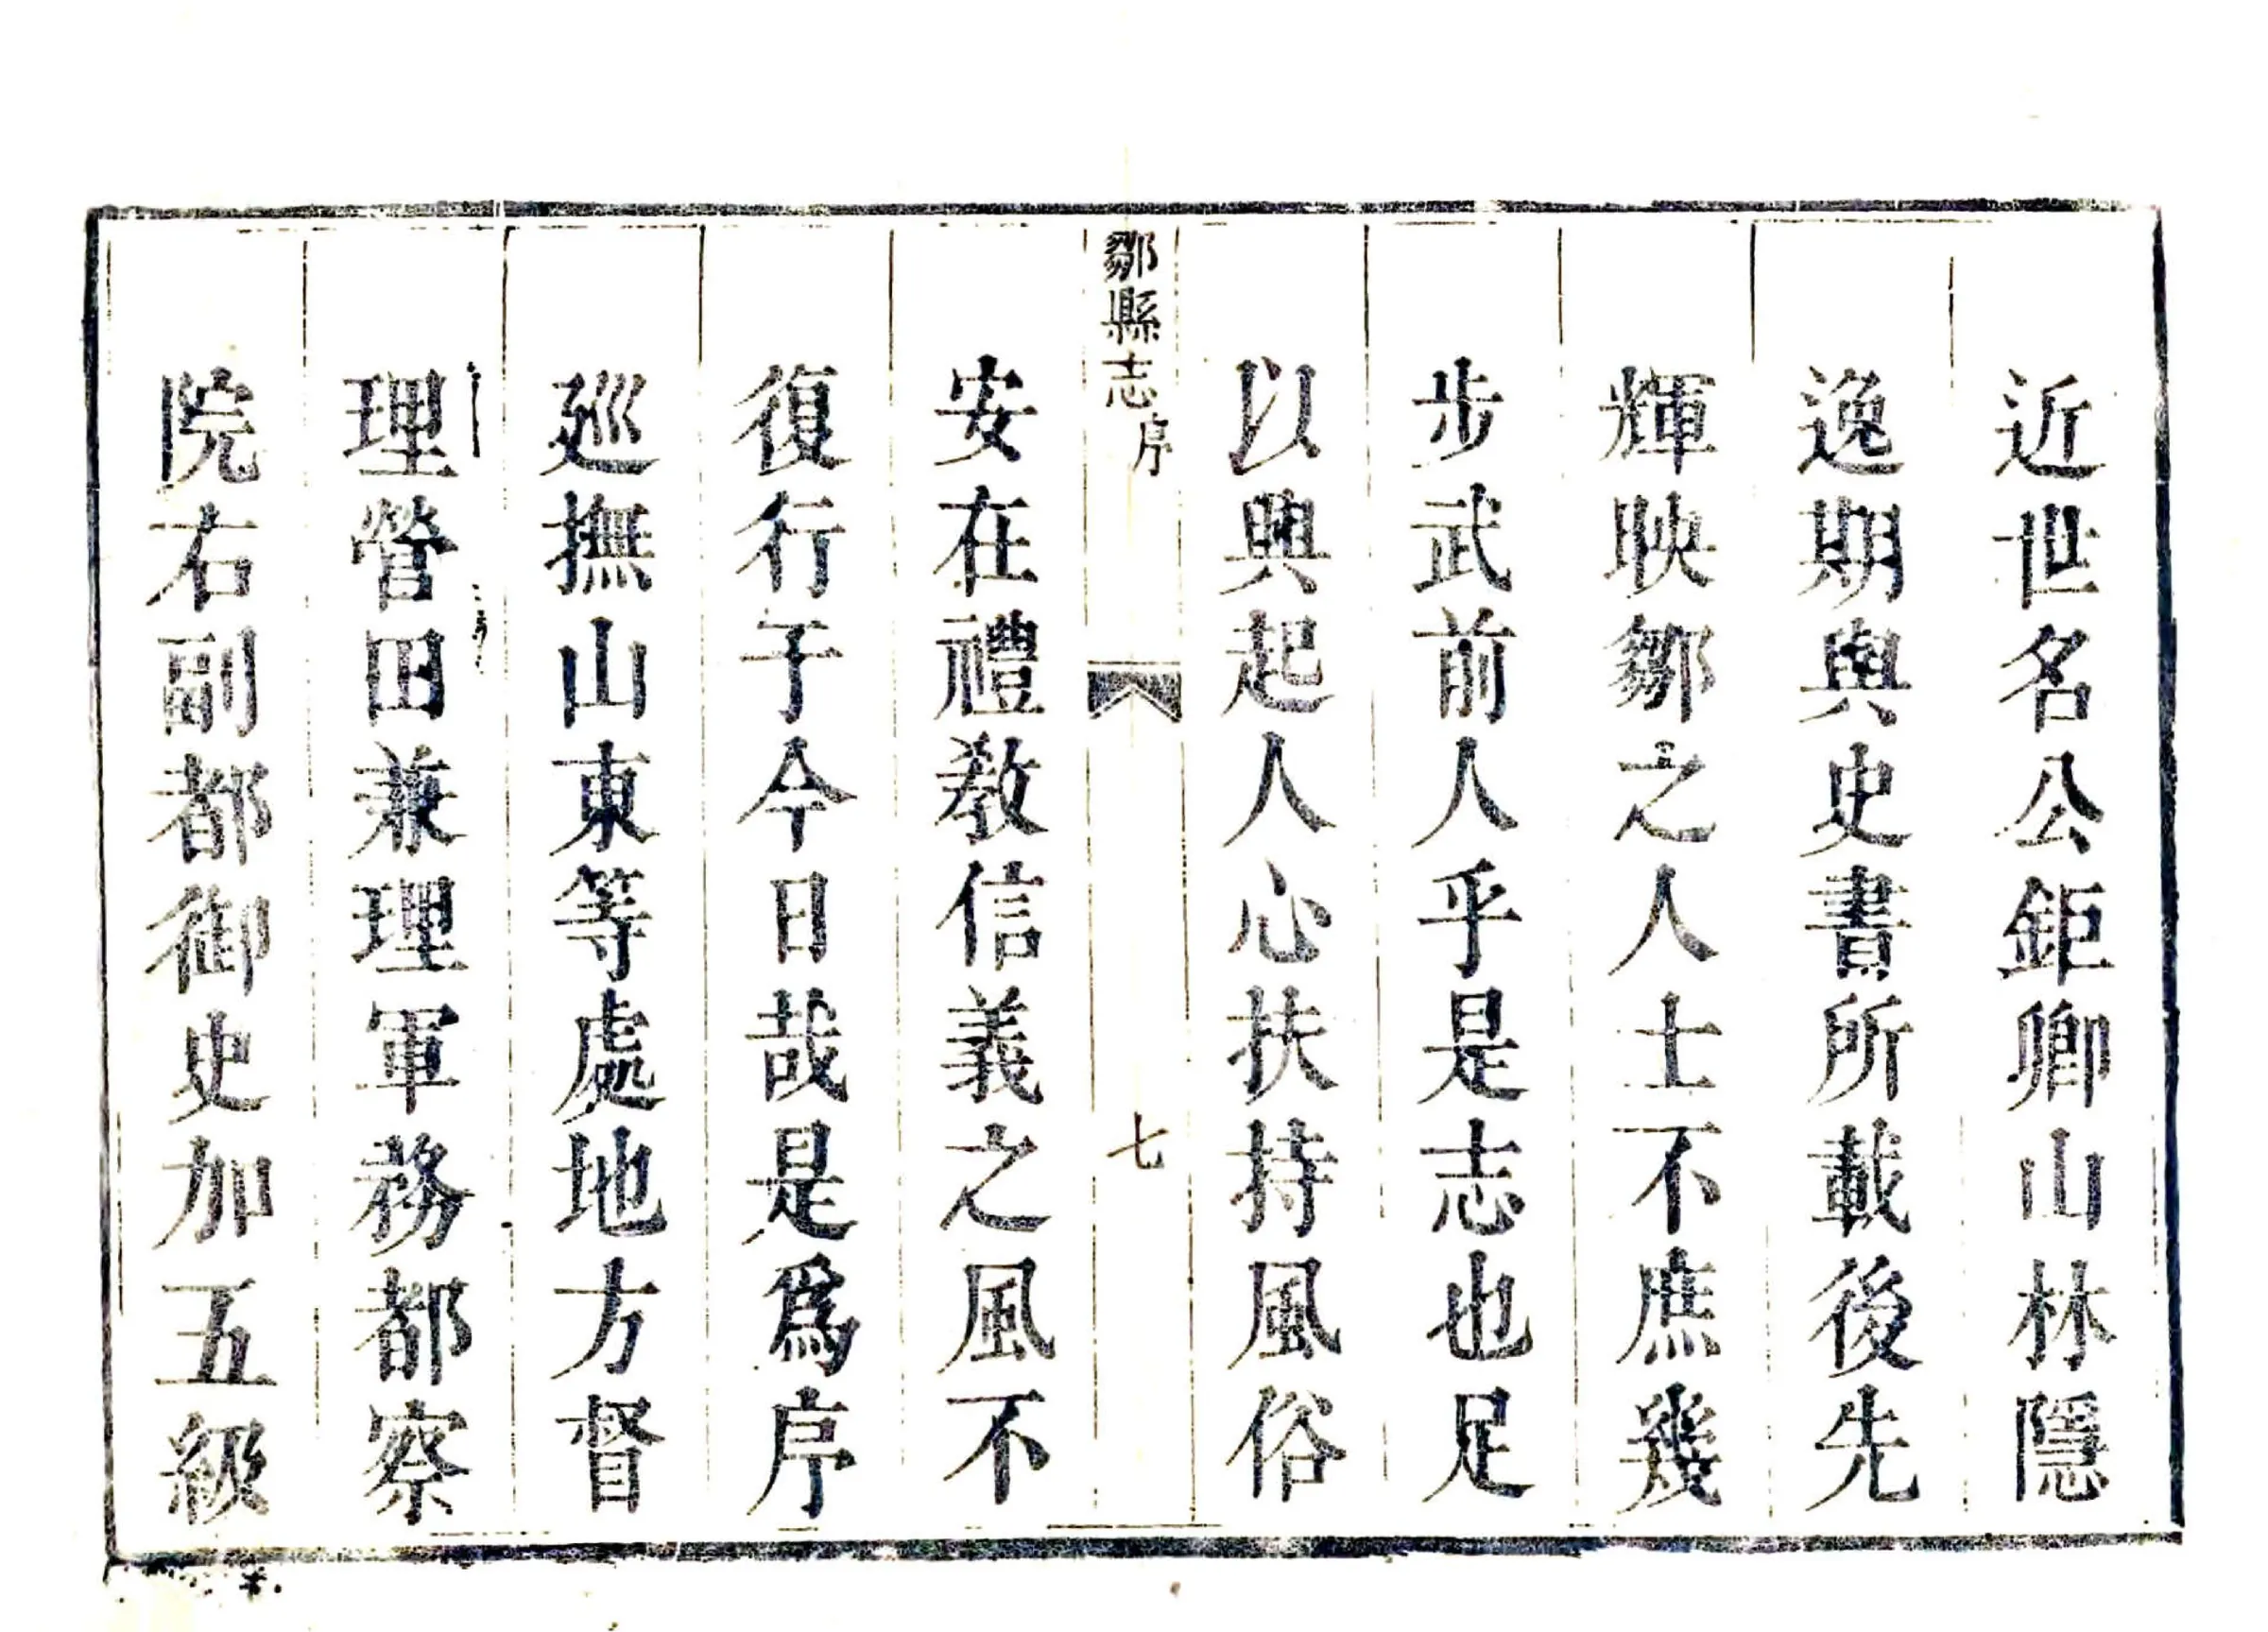 近世名公鉅卿山林隱
逸期與史書所載後先
輝映鄒之人士不庶幾
步武前人乎是志也足
以興起人心扶持風俗
鄒縣志序 七
安在禮教信義之風不
復行于今日哉是爲序
廵撫山東等處地方督
理營田兼理軍務都察
院右副都御史加五級